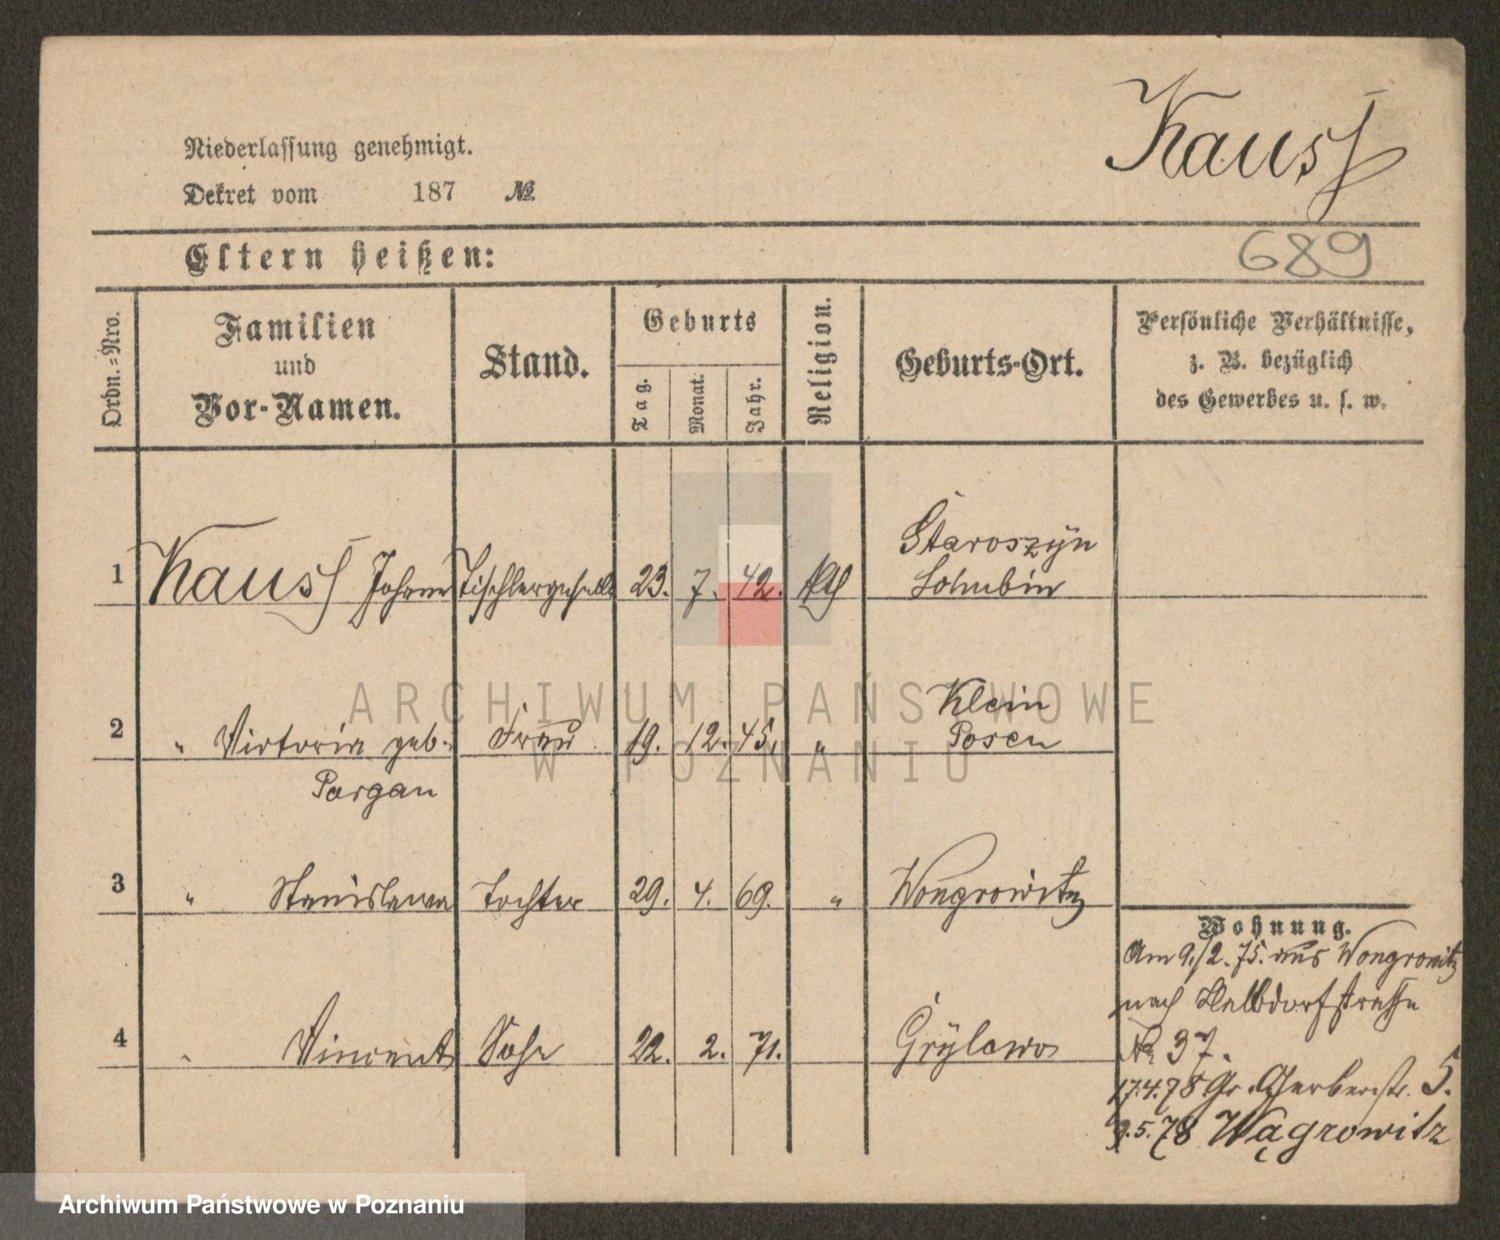 Kauss
Niederlassung genehmigt.
Dekret vom 187 №
689
Eltern heißen:
Ordn.-Nro.
Familien
und
Vor-Namen.
Stand.
Geburts
Tag.
Monat.
Jahr.
Religion.
Geburts-Ort.
Persönliche Verhältnisse,
z. B. bezüglich
des Gewerbes u. s. w.
Staroszyn
1 Kauss Johann Tischlergeselle 23. 7. 42. kth Schubin
Klein
2 " Victoria geb. Frau 19. 12. 45. " Posen
Pargan
3 " Stanislawa Tochter 29. 4. 69. " Wongrowitz
4 " Vincent Sohn 22. 2. 71. Grylewo
Wohnung.
Am 9./2. 75. aus Wongrowitz
nach Halbdorfstrasse
№ 37.
17.4.78 Gr. Gerberstr. 5.
9.5.78 Wągrowitz
ARCHIWUM PAŃSTWOWE
W POZNANIU
Archiwum Państwowe w Poznaniu